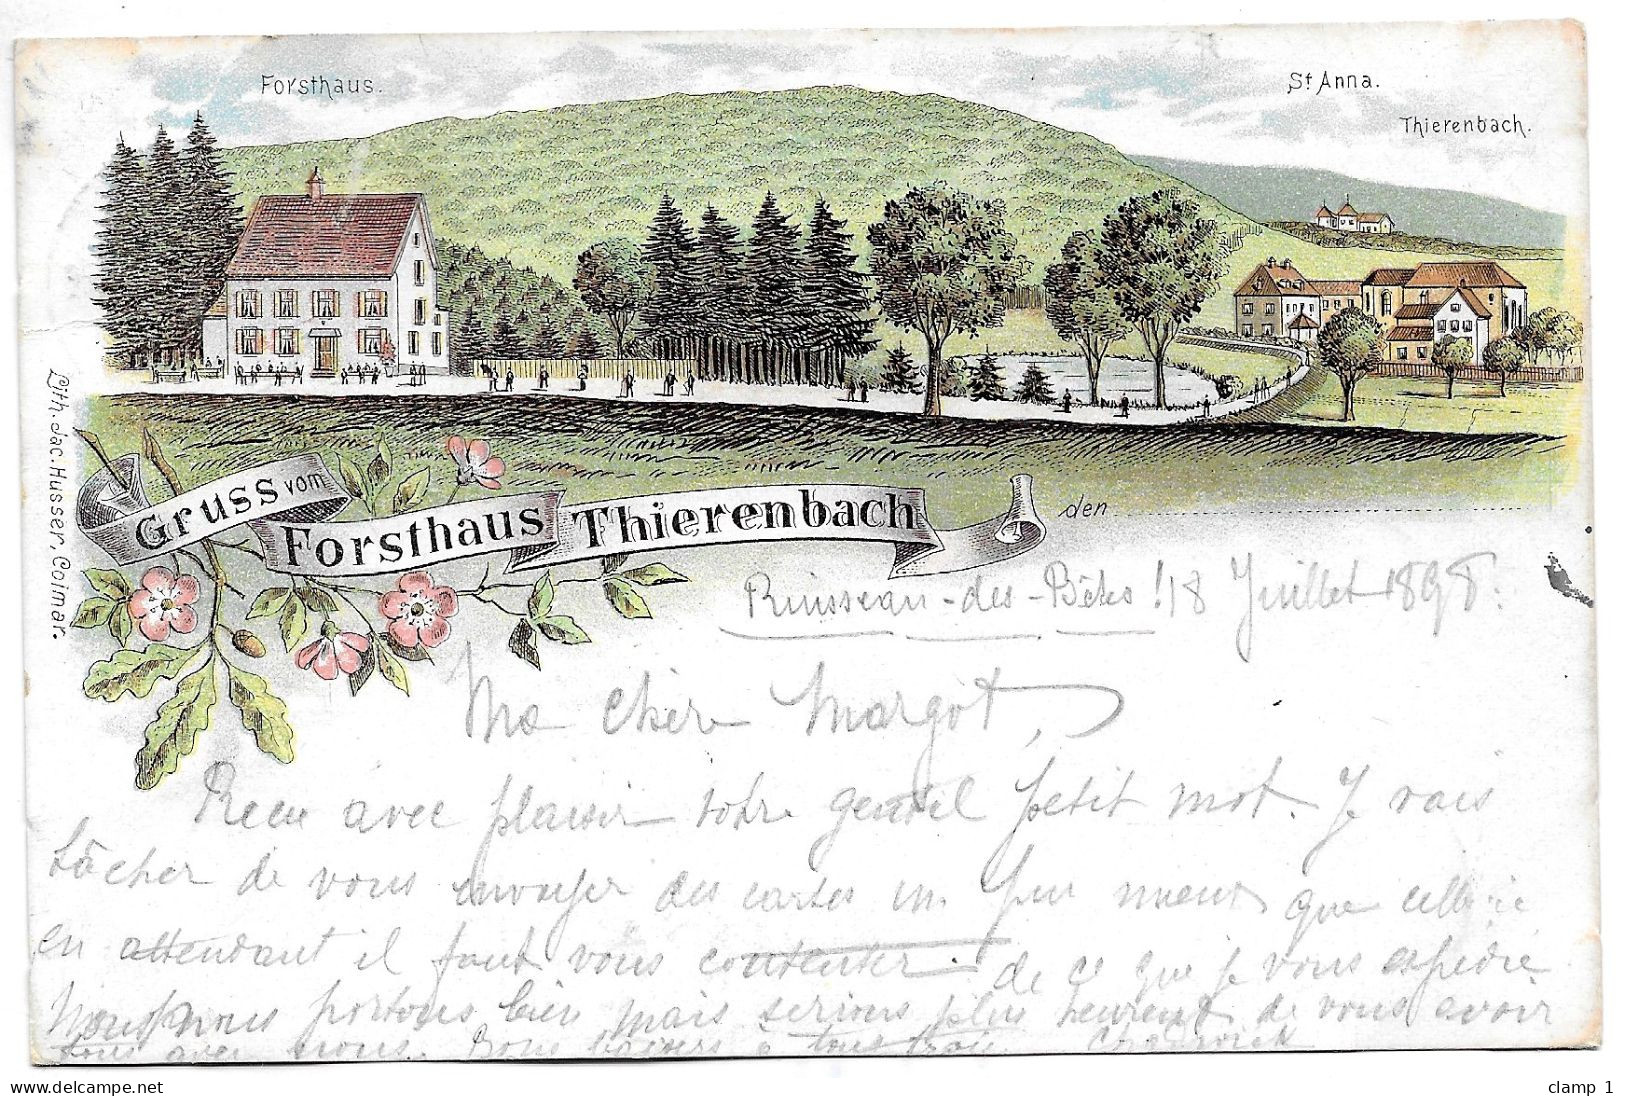 Forsthaus.
St Anna.
Thierenbach.
Lith. Jac. Husser, Colmar.
Gruss vom
Forsthaus Thierenbach
den
Ruisseau-des-Bêtes ! 18 Juillet 1898.
Ma chère Margot,
Recu avec plaisir votre gentil petit mot. Je vais
tâcher de vous envoyer des cartes un peu mieux que celle-ci
en attendant il faut vous contenter de ce que je vous expédie
Nous nous portons bien mais serions plus heureux de vous avoir
tous avec nous. Bons baisers à tous
clamp 1